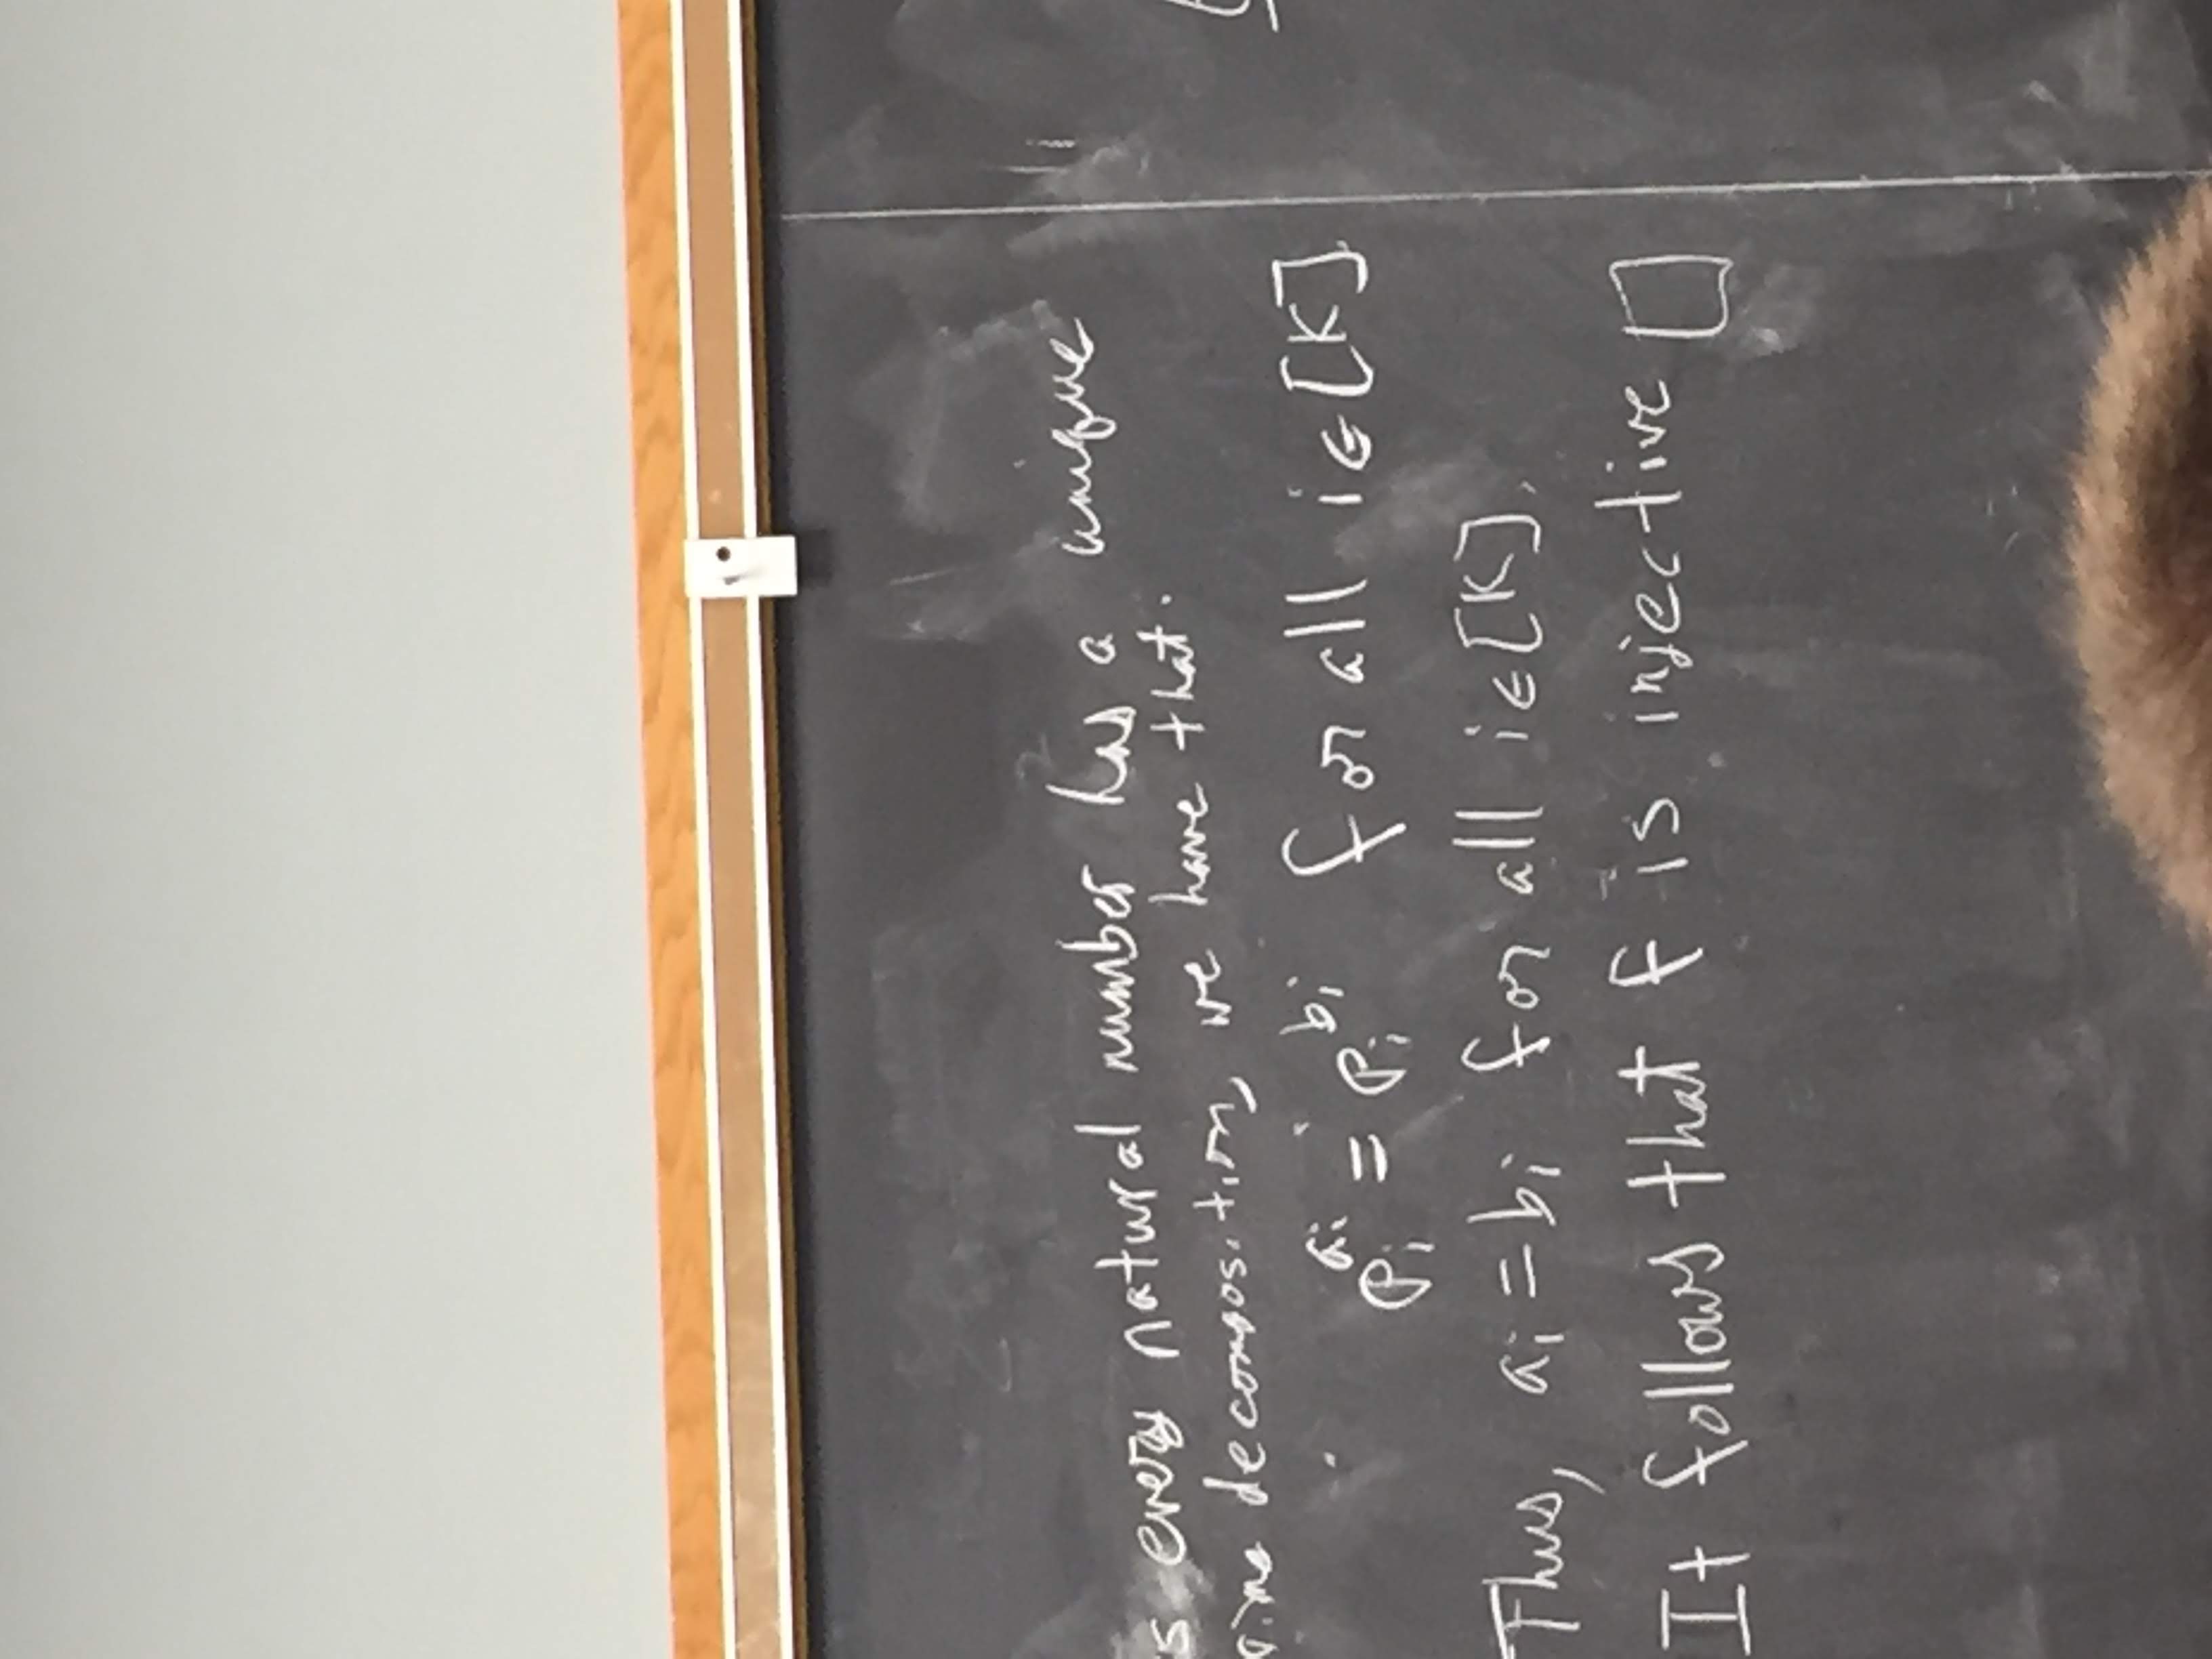 s every natural number has a unique
rime decomposition, we have that.
p_i^{a_i} = p_i^{b_i} for all i∈[K]
Thus, a_i = b_i for all i∈[K].
It follows that f is injective □